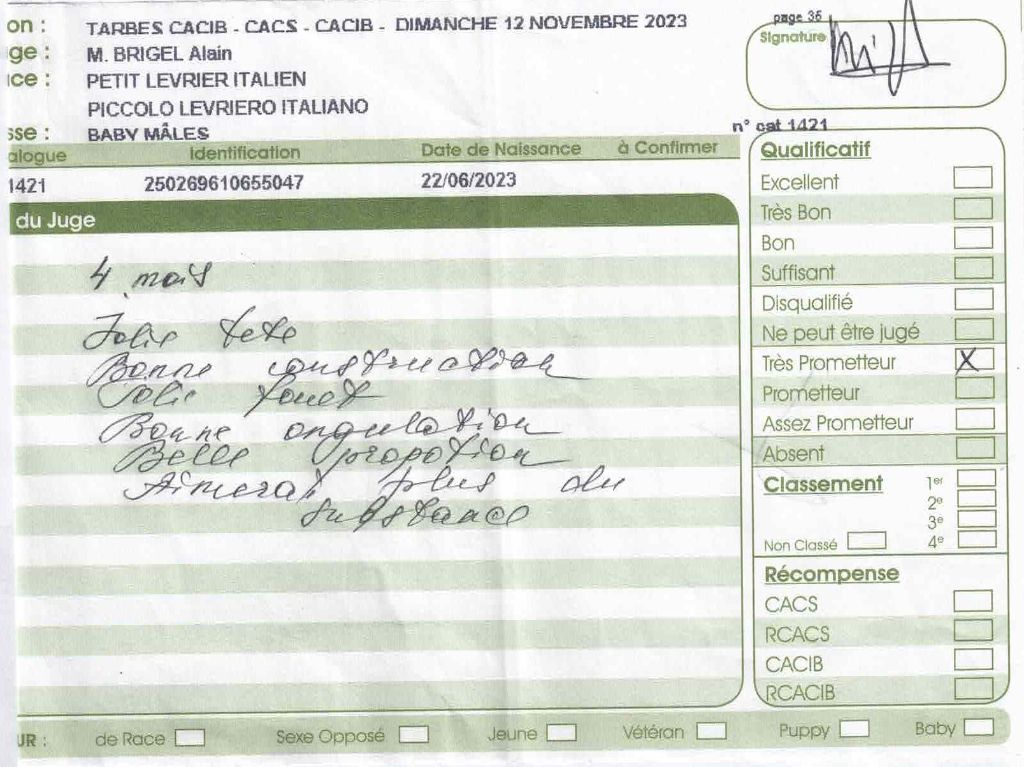 on : TARBES CACIB - CACS - CACIB - DIMANCHE 12 NOVEMBRE 2023
page 35
Signature
ge : M. BRIGEL Alain
ce : PETIT LEVRIER ITALIEN
PICCOLO LEVRIERO ITALIANO
sse : BABY MÂLES
n° cat 1421
alogue Identification Date de Naissance à Confirmer
1421 250269610655047 22/06/2023
du Juge
4 mois
Jolie tete
Bonne construction
Jolie fouet
Bonne angulation
Belle propotion
Aimerai plus du
substance
Qualificatif
Excellent
Très Bon
Bon
Suffisant
Disqualifié
Ne peut être jugé
Très Prometteur X
Prometteur
Assez Prometteur
Absent
Classement 1er
2e
3e
Non Classé 4e
Récompense
CACS
RCACS
CACIB
RCACIB
UR : de Race Sexe Opposé Jeune Vétéran Puppy Baby